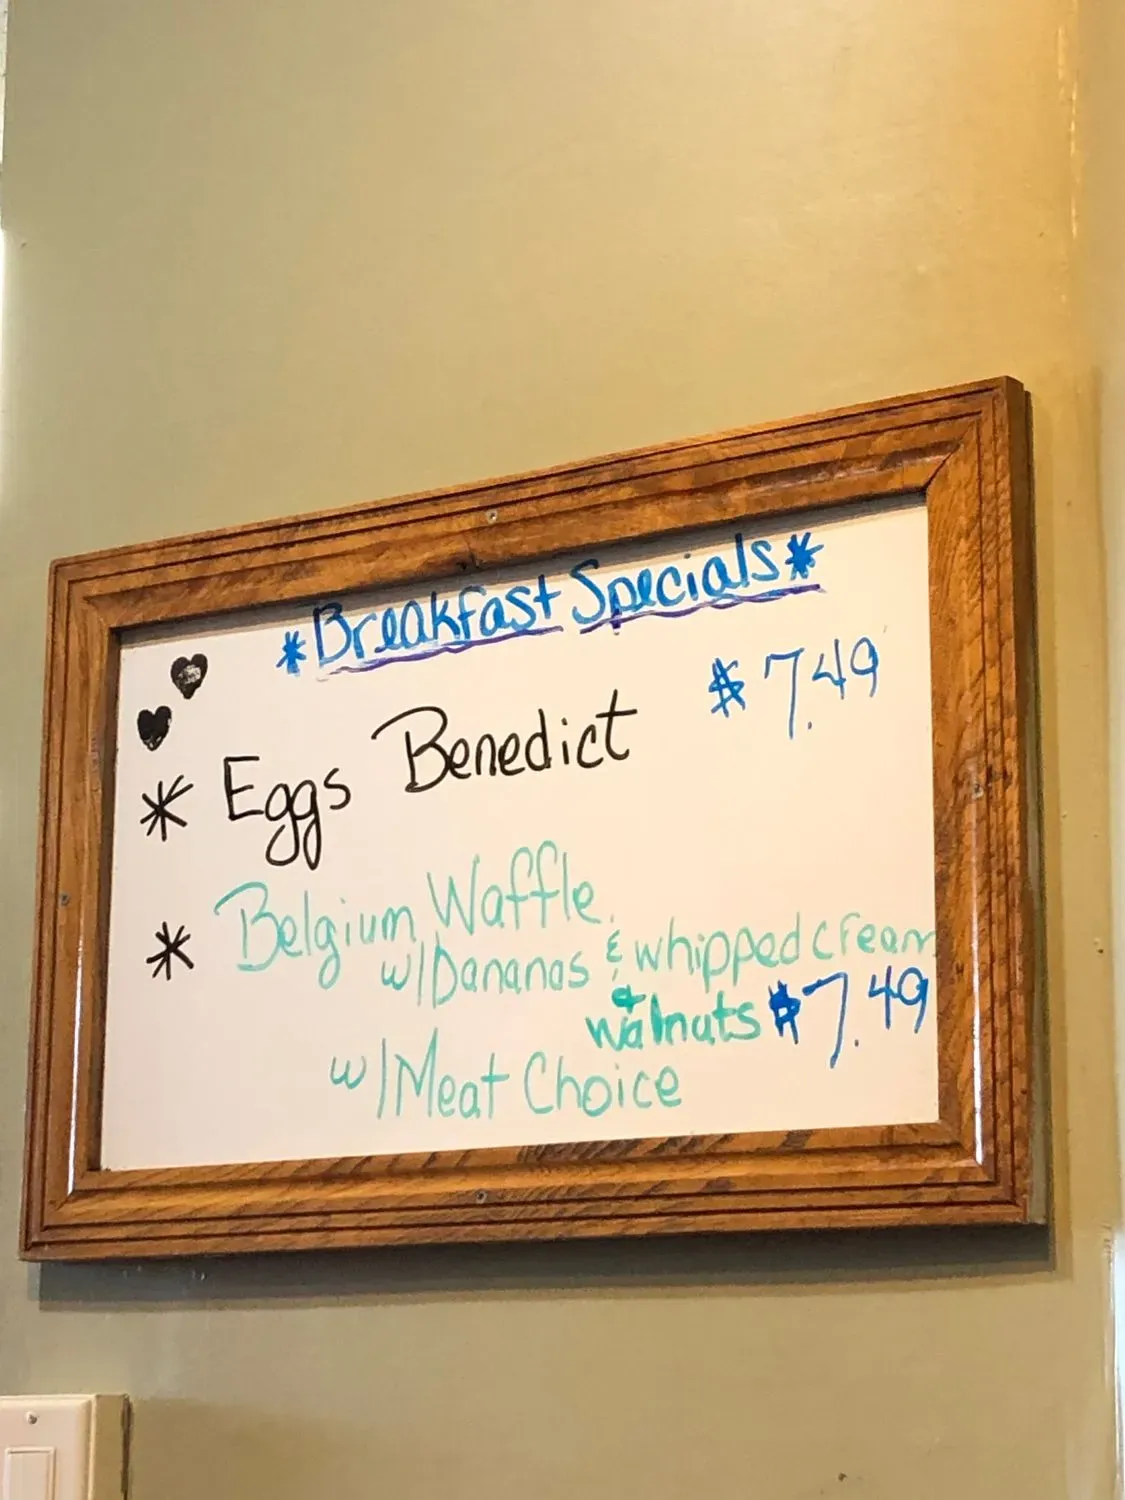 *Breakfast Specials*
$7.49
* Eggs Benedict
* Belgium Waffle
w/Bananas & whipped cream
& walnuts $7.49
w/Meat Choice